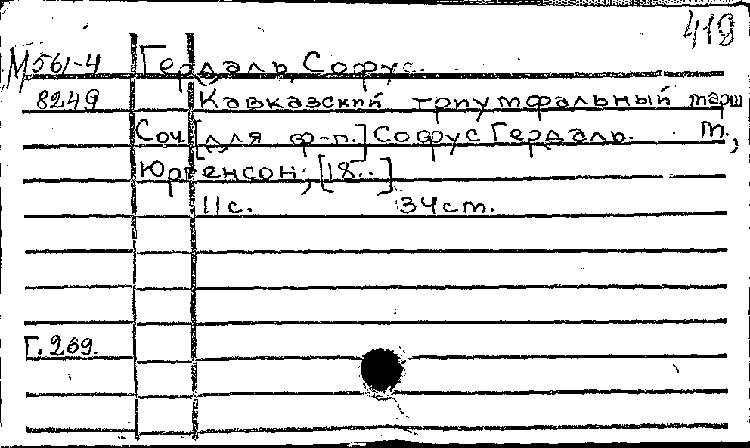 419
М 561-4 Гердаль, Софус.
8249 Кавказский триумфальный марш
Соч. [для ф-п.] Софус Гердаль. М.,
Юргенсон, [18..]
11с. 34см.
Г. 269.